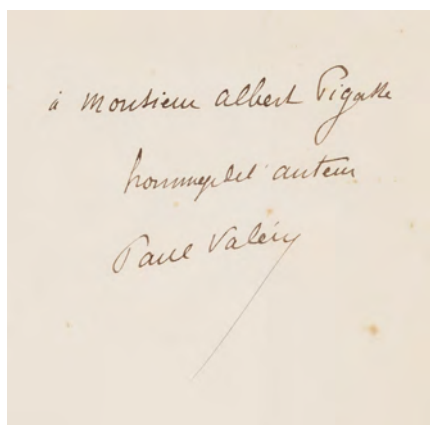 à Monsieur Albert Pigasse
hommage de l'auteur
Paul Valéry